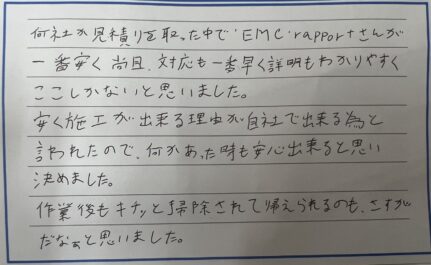 何社か見積りを取った中で EMC:rapportさんが
一番安く 尚且、対応も一番早く説明もわかりやすく
ここしかないと思いました。
安く施工が出来る理由が自社で出来る為と
言われたので、何かあった時も安心出来ると思い
決めました。
作業後もキチッと掃除されて帰えられるのも、さすが
だなぁと思いました。